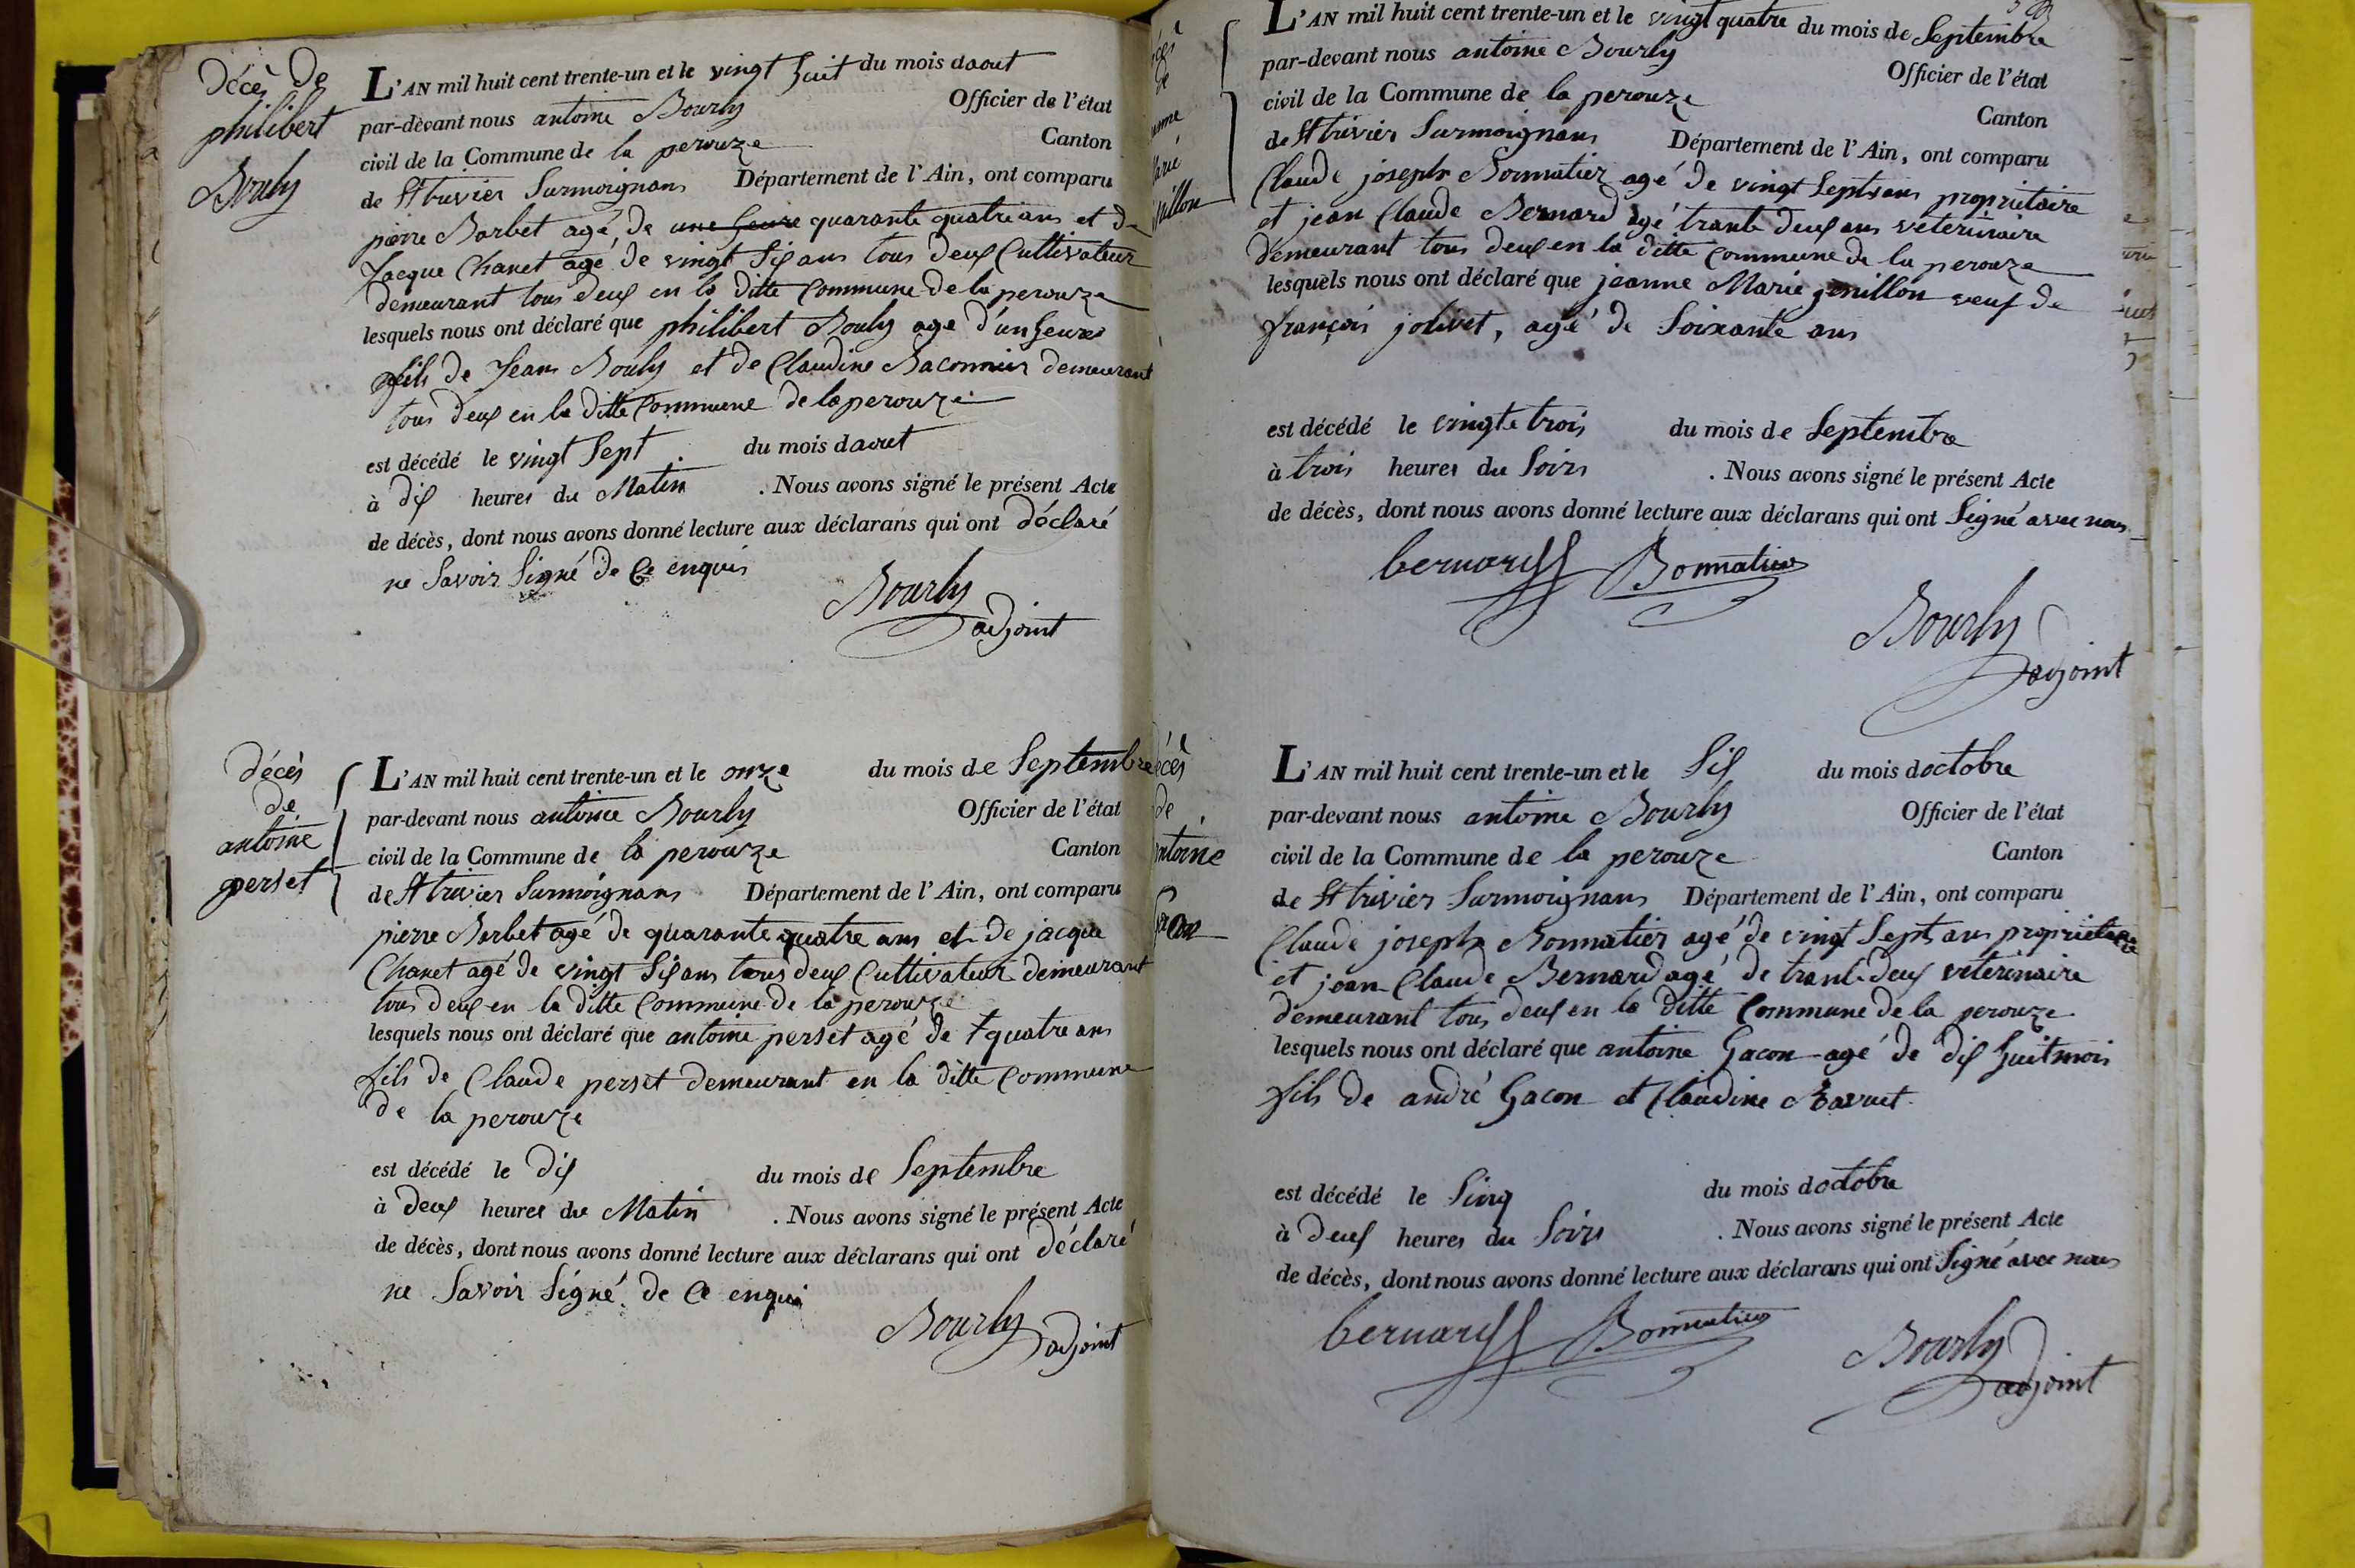 Décè de
philibert
Bouly
L'AN mil huit cent trente-un et le vingt huit du mois daout
par-devant nous antoine Bourly Officier de l'état
civil de la Commune de la perouze Canton
de St trivier Surmoignans Département de l'Ain, ont comparu
pierre Borbet agé de une heure quarante quatre ans et de
Jacque Chanet agé de vingt Six ans tous deux Cultivateur
demeurant tous deux en la ditte Commune de la perouze
lesquels nous ont déclaré que philibert Bouly age d'un heure
fils de Jean Bouly et de Claudine Baconnier demeurant
tous deux en la ditte Commune de la perouze
est décédé le vingt Sept du mois daout
à dix heures du Matin . Nous avons signé le présent Acte
de décès, dont nous avons donné lecture aux déclarans qui ont déclaré
ne Savoir Signé de Ce enquis
Bourly
adjoint
décès
de
antoine
perset
L'AN mil huit cent trente-un et le onze du mois de Septembre
par-devant nous antoine Bourly Officier de l'état
civil de la Commune de la perouze Canton
de St trivier Surmoignans Département de l'Ain, ont comparu
pierre Borbet agé de quarante quatre ans et de jacque
Chanet agé de vingt Six ans tous deux Cultivateur demeurant
tous deux en la ditte Commune de la perouze
lesquels nous ont déclaré que antoine perset agé de quatre ans
fils de Claude perset demeurant en la ditte Commune
de la perouze
est décédé le dix du mois de Septembre
à deux heures du Matin . Nous avons signé le présent Acte
de décès, dont nous avons donné lecture aux déclarans qui ont déclaré
ne Savoir Signé de Ce enqui
Bourly
adjoint
L'AN mil huit cent trente-un et le vingt quatre du mois de Septembre
par-devant nous antoine Bourly Officier de l'état
civil de la Commune de la perouze Canton
de St trivier Surmoignans Département de l'Ain, ont comparu
Claude joseph Bonnatier agé de vingt Sept ans propriétaire
et jean Claude Bernard agé trante deux ans veterinaire
demeurant tous deux en la ditte Commune de la perouze
lesquels nous ont déclaré que jeanne Marie jenillon veuf de
françois jolivet, agé de Soixante ans
est décédé le vingte trois du mois de Septembre
à trois heures du Soirs . Nous avons signé le présent Acte
de décès, dont nous avons donné lecture aux déclarans qui ont Signé avec nous
bernard Bonnatier
Bourly
adjoint
décès
de
antoine
Gacon
L'AN mil huit cent trente-un et le Six du mois doctobre
par-devant nous antoine Bourly Officier de l'état
civil de la Commune de la perouze Canton
de St trivier Surmoignans Département de l'Ain, ont comparu
Claude joseph Bonnatier agé de vingt Sept ans propriétaire
et jean Claude Bernard agé de trante deux veterinaire
demeurant tous deux en la ditte Commune de la perouze
lesquels nous ont déclaré que antoine Gacon agé de dix huit mois
fils de andré Gacon et Claudine
est décédé le Sinq du mois doctobre
à deux heures du Soirs . Nous avons signé le présent Acte
de décès, dont nous avons donné lecture aux déclarans qui ont Signé avec nous
bernard Bonnatier
Bourly
adjoint